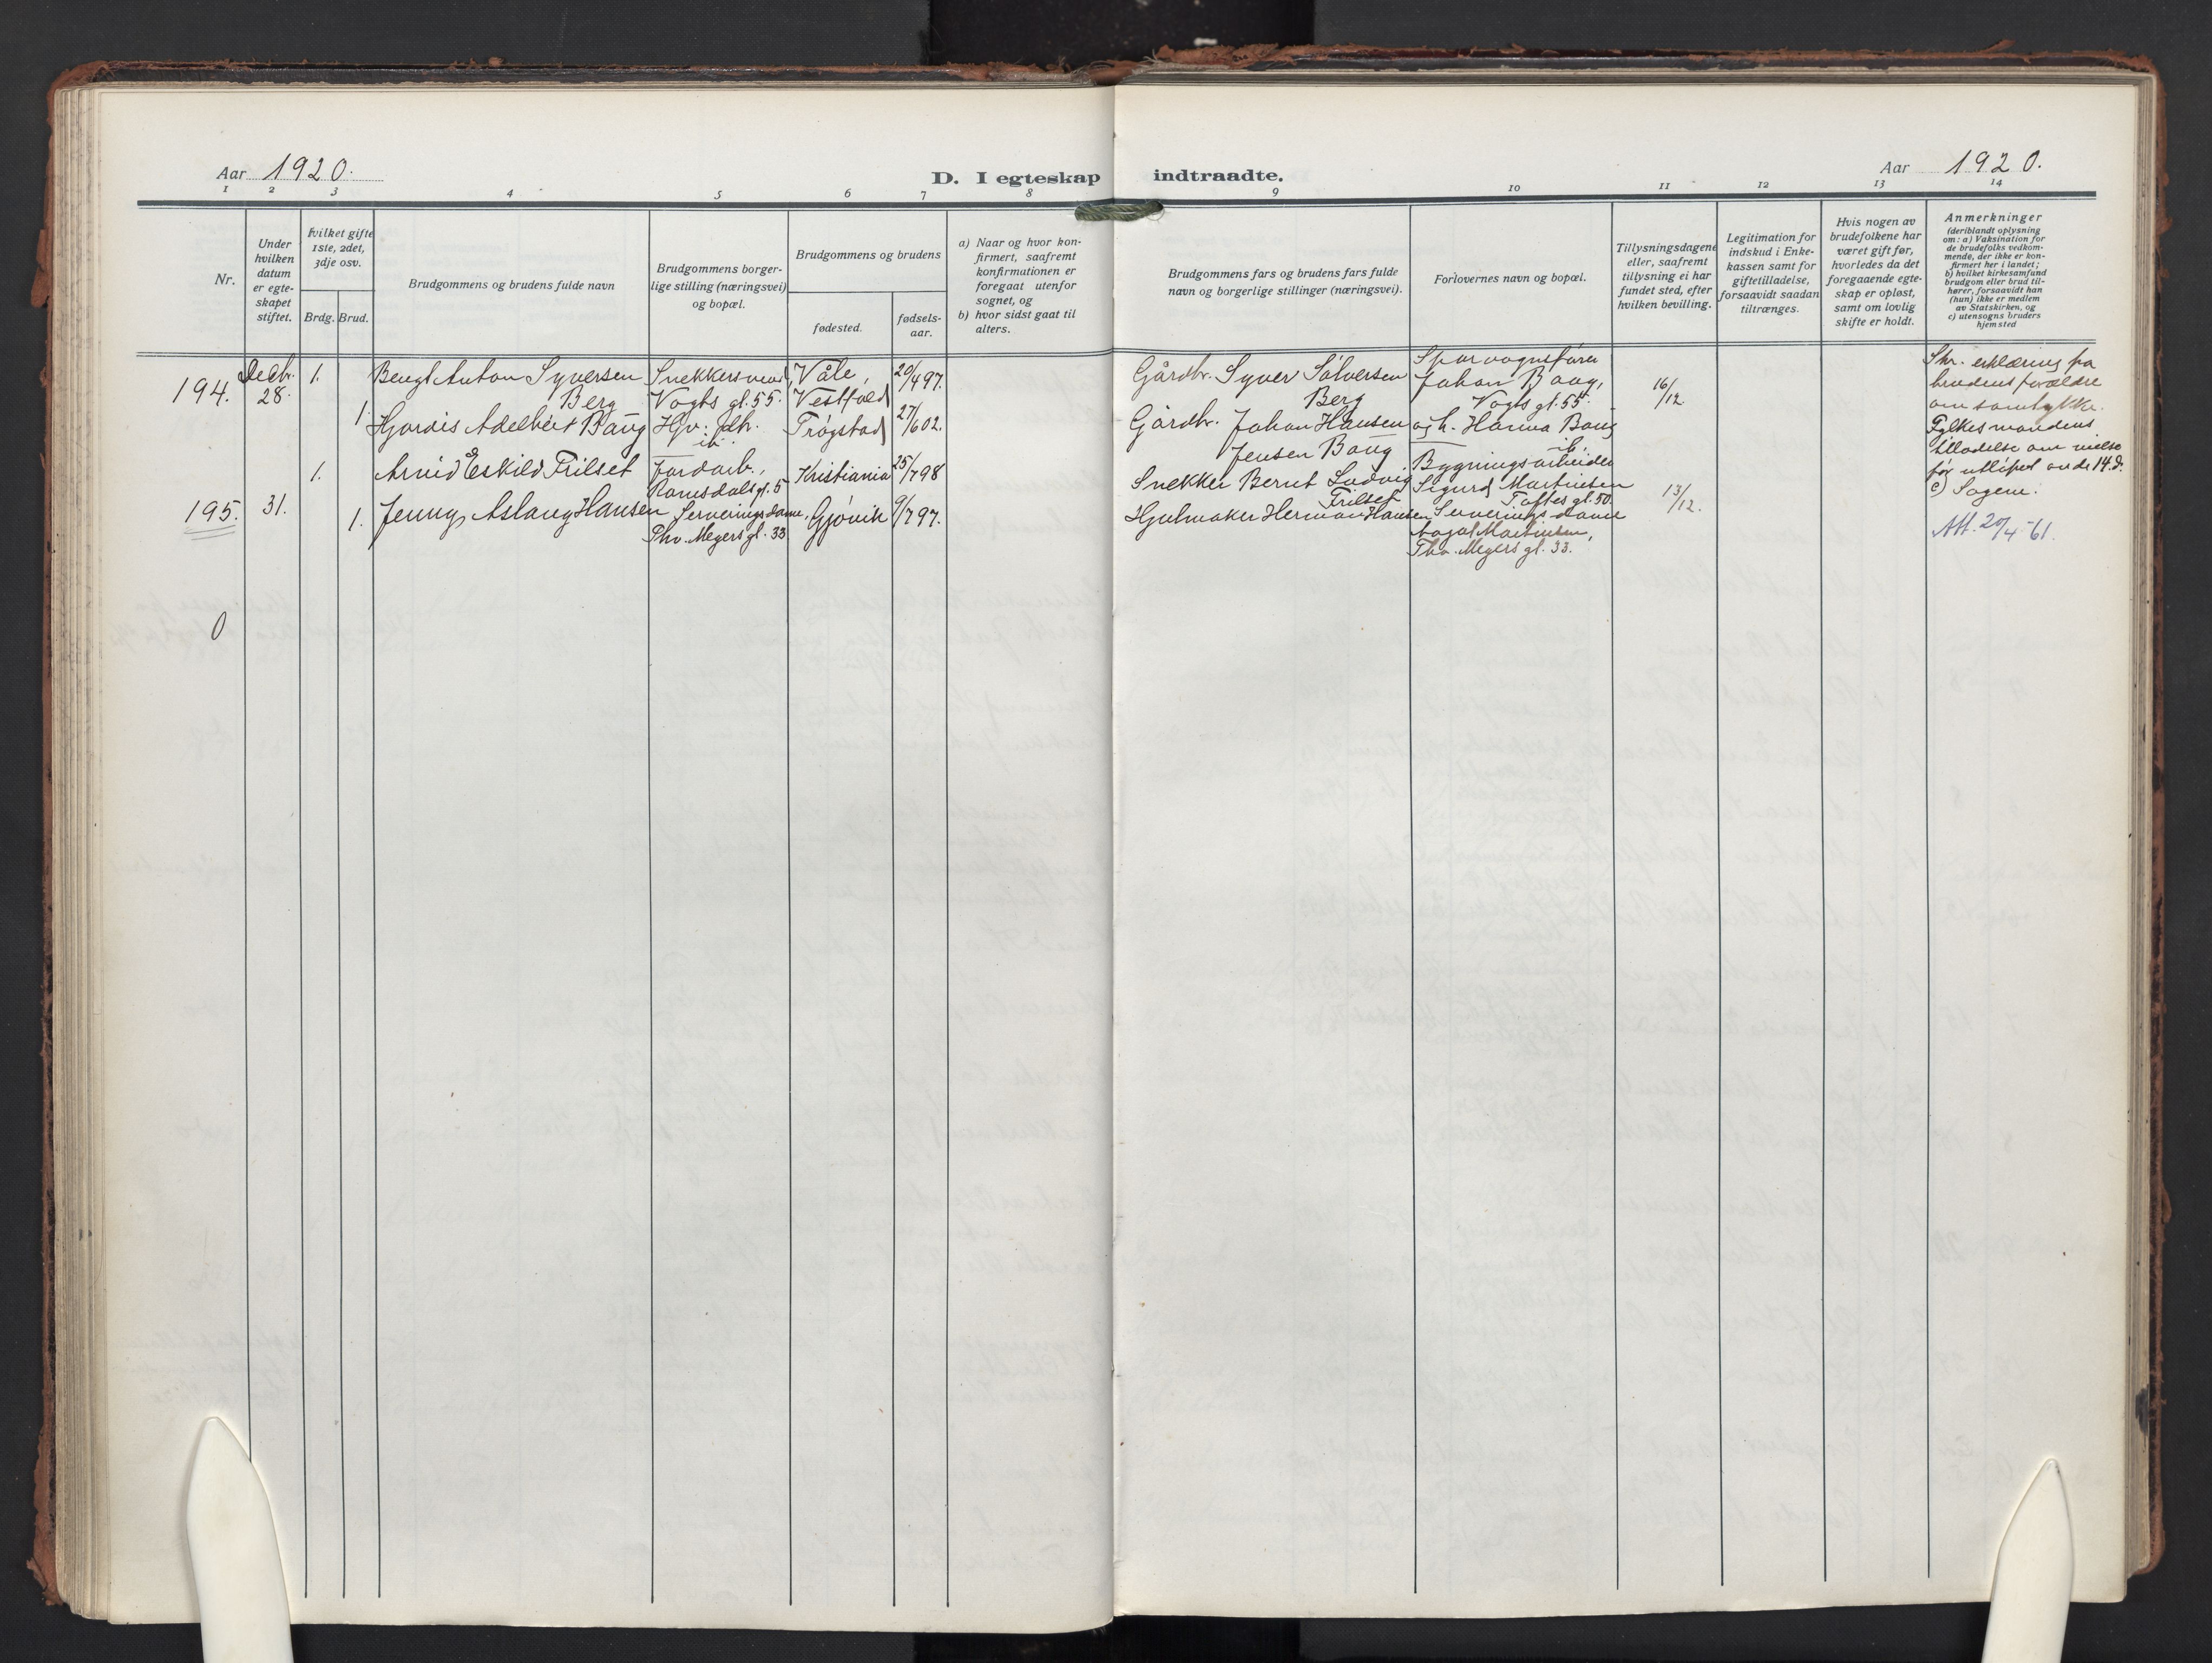 Aar 1920.
D. I egteskap indtraadte.
Aar 1920.
1 2 3 4 5 6 7 8 9 10 11 12 13 14
Nr.
Under
hvilken
datum
er egte-
skapet
stiftet.
Hvilket gifte
1ste, 2det,
3dje osv.
Brdg. Brud.
Brudgommens og brudens fulde navn
Brudgommens borger-
lige stilling (næringsvei)
og bopæl.
Brudgommens og brudens
fødested.
fødsels-
aar.
a) Naar og hvor kon-
firmert, saafremt
konfirmationen er
foregaat utenfor
sognet, og
b) hvor sidst gaat til
alters.
Brudgommens fars og brudens fars fulde
navn og borgerlige stillinger (næringsvei).
Forlovernes navn og bopæl.
Tillysningsdagene
eller, saafremt
tillysning ei har
fundet sted, efter
hvilken bevilling.
Legitimation for
indskud i Enke-
kassen samt for
giftetilladelse,
forsaavidt saadan
tiltrænges.
Hvis nogen av
brudefolkene har
været gift før,
hvorledes da det
foregaaende egte-
skap er opløst,
samt om lovlig
skifte er holdt.
Anmerkninger
(deriblandt oplysning
om: a) Vaksination for
de brudefolks vedkom-
mende, der ikke er kon-
firmert her i landet;
b) hvilket kirkesamfund
brudgom eller brud til-
hører, forsaavidt han
(hun) ikke er medlem
av Statskirken, og
c) utensogns bruders
hjemsted
194.
Decbr.
28.
1.
Bengt Anton Syversen
Berg
Snekkersvend,
Vogts gt. 55.
Våle,
Vestfold
20/4 97.
Gårdbr. Syver Sølversen
Berg
Sporvognsfører
Johan Baug,
Vogts gt. 55
16/12
1.
Hjørdis Adelheit Baug
Hjv. dtr.
ib.
Trøgstad
27/6 02.
Gårdbr. Johan Hansen
Jensen Baug
og h. Hanna Baug
ib.
Skr. erklæring fra
brudens forældre
om samtykke.
Fylkesmandens
tilladelse om vielse
før utløpet av de 14 d.
195.
31.
1.
Arvid Eskild Frilset
Jordarb.,
Romsdalsgt. 5
Kristiania
25/7 98
Snekker Bernt Ludvig
Frilset
Bygningsarbeider
Sigurd Martinsen
Toftes gt. 50.
13/12.
c) Sagene.
1.
Jenny Aslaug Hansen
Serveringsdame,
Thv. Meyers gt. 33
Gjøvik
9/7 97.
Hjulmaker Herman Hansen
Serveringsdame
Aagot Martinsen,
Thv. Meyers gt. 33.
Att. 20/4-61.
0